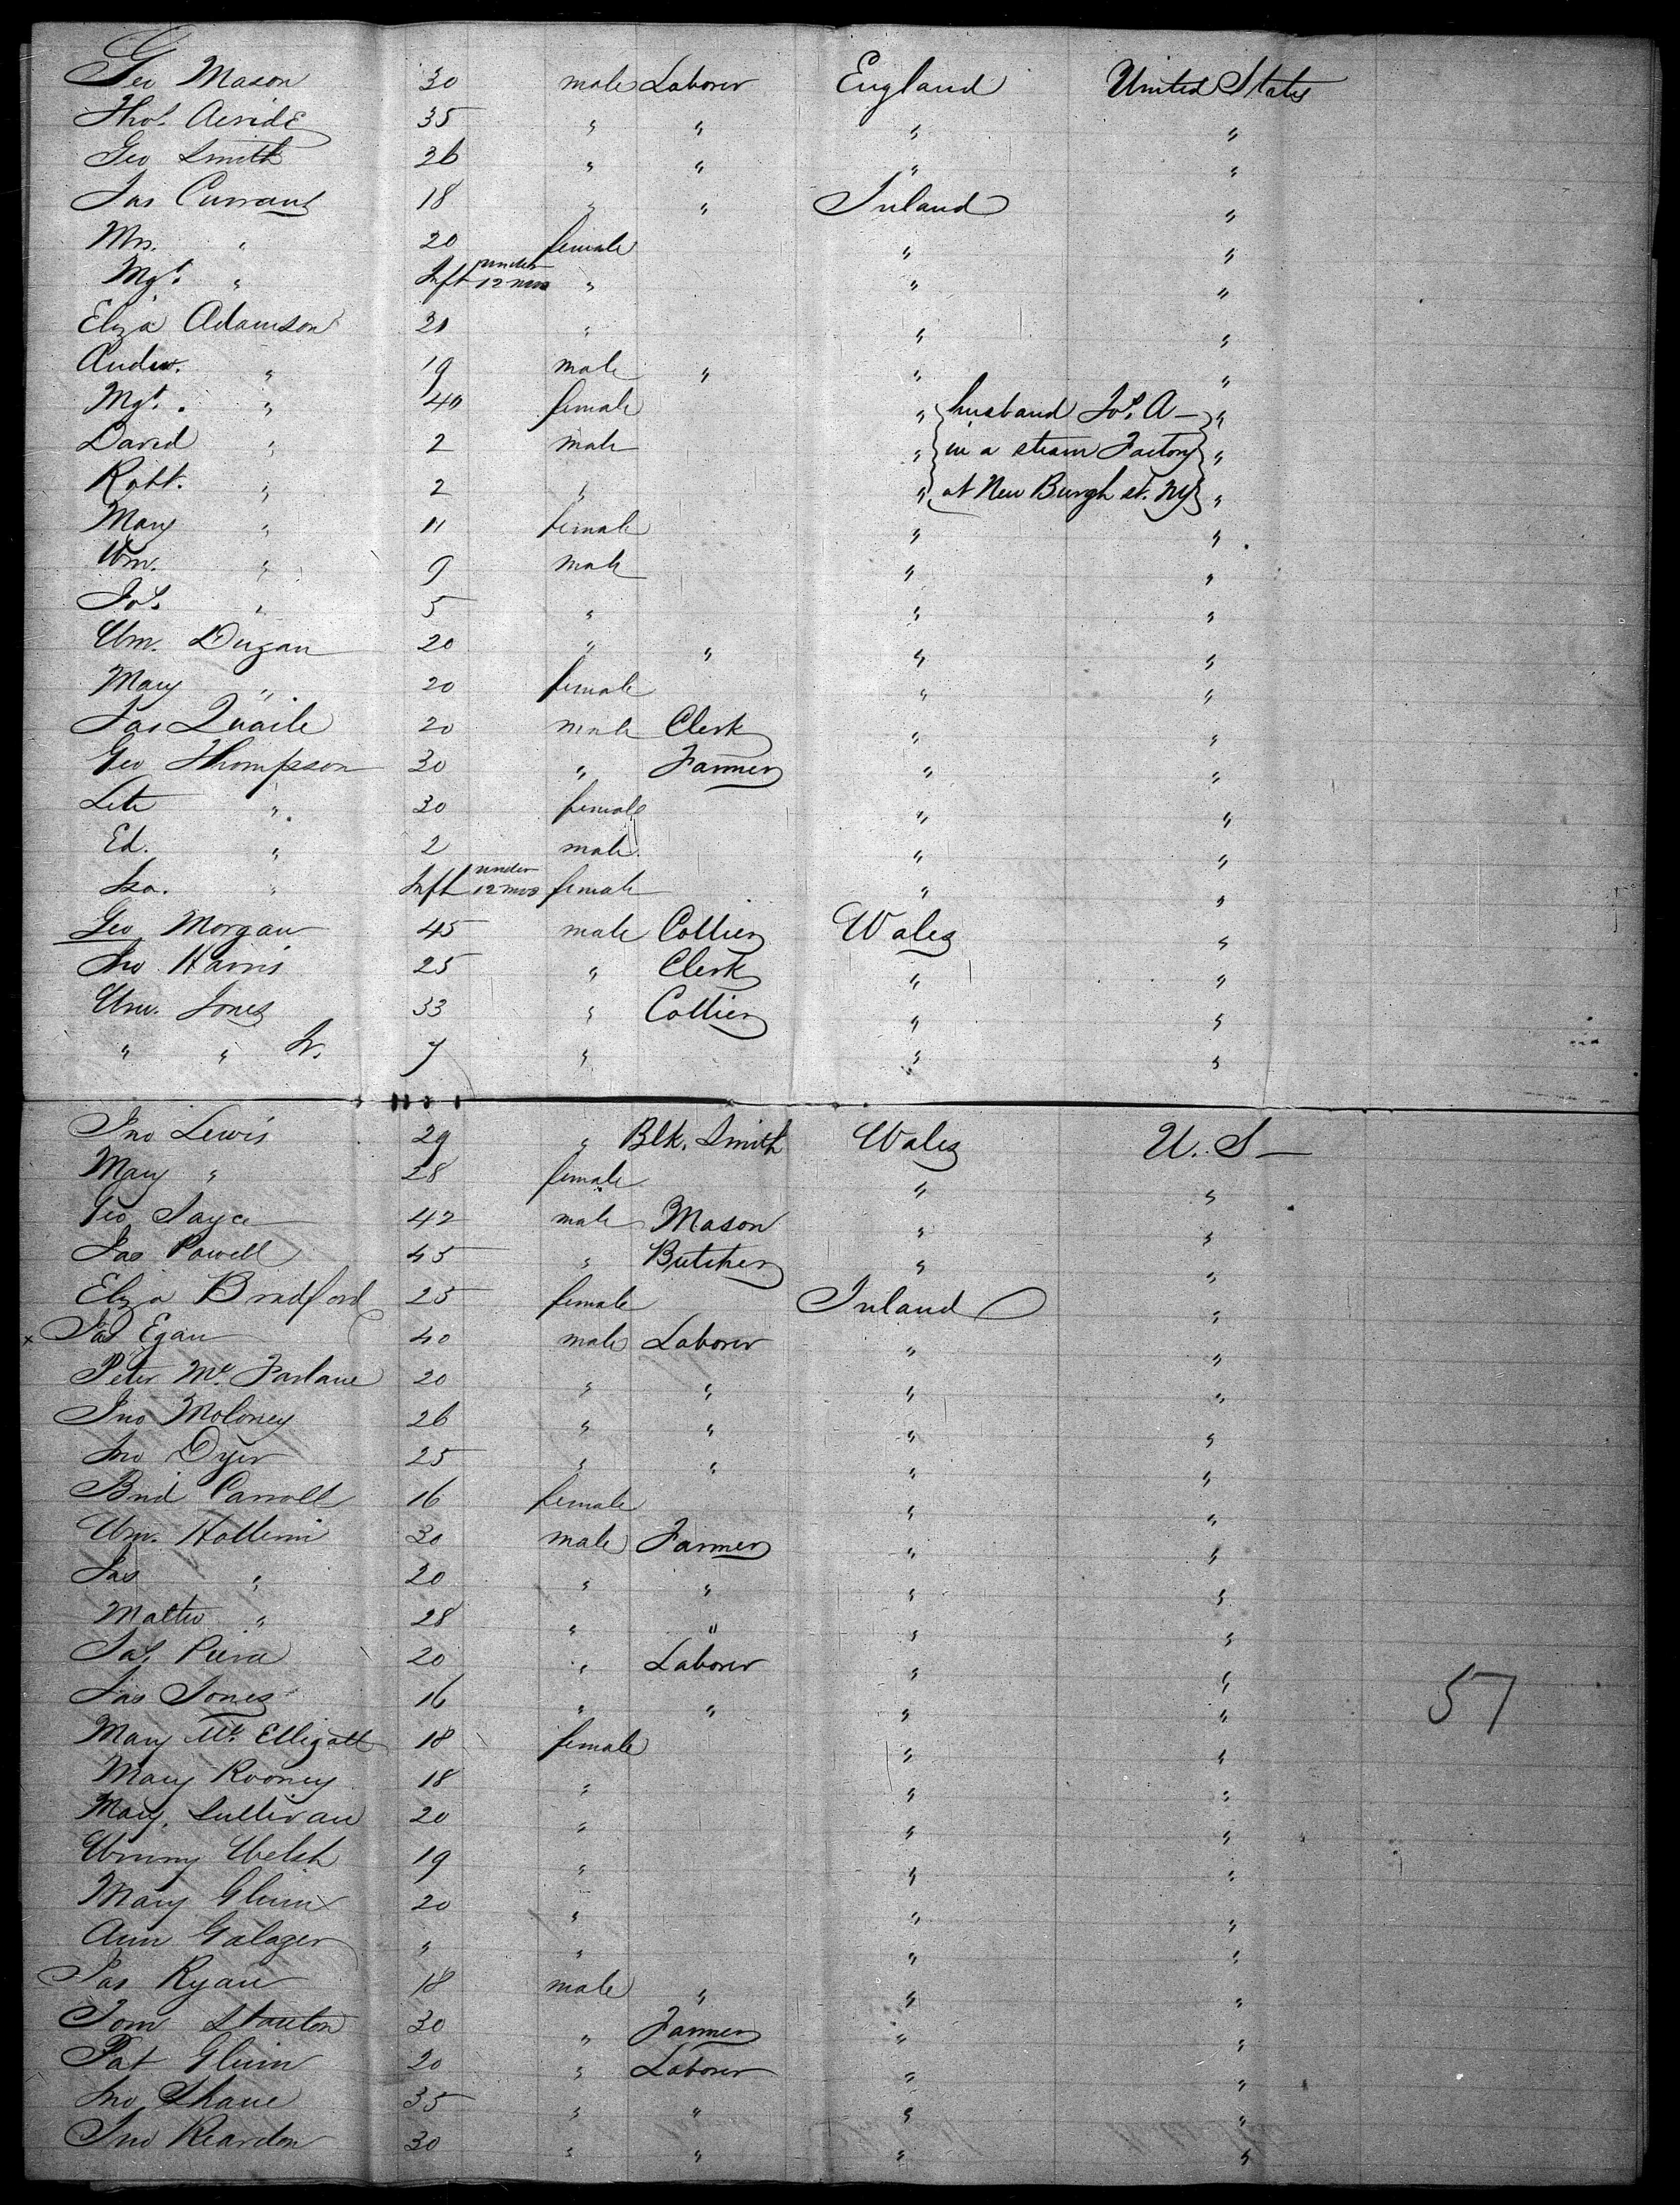 Geo Mason 30 male Laborer England United States
Thos. 35 " " " "
Geo Smith 26 " " " "
Jas Currans 18 " " Ireland "
Mrs. " 20 female " "
Mgt. " Inft under 12 mos " " "
Eliza Adamson 21 " " "
Andw. " 19 male " " "
Mgt. " 40 female " husband Jos. A— "
David " 2 male " in a steam Factory "
Robt. " 2 " " at New Burgh st. NY "
Mary " 11 female " "
Wm. " 9 male " "
Jos. " 5 " " "
Wm. Dugan 20 " " " "
Mary " 20 female " "
Jas Quaile 20 male Clerk " "
Geo Thompson 30 " Farmer " "
" 30 female " "
Ed. " 2 male " "
Isa. " Inft under 12 mos female " "
Geo Morgan 45 male Collier Wales "
Jno Harris 25 " Clerk " "
Wm. Jones 33 " Collier " "
" " Jr. 7 " " "
Jno Lewis 29 " Blk. Smith Wales U. S—
Mary " 28 female " "
Geo Sayce 42 male Mason " "
Jas Powell 45 " Butcher " "
Eliza Bradford 25 female Ireland "
x Pat Egan 40 male Laborer " "
Peter Mc. Farlane 20 " " " "
Jno Moloney 26 " " " "
Jno Dyer 25 " " " "
Brid Carroll 16 female " "
Wm. 30 male Farmer " "
Jas " 20 " " " "
Mattw " 28 " " " "
20 " Laborer " "
Jas Jones 16 " " " "
Mary Mc. Elligatt 18 female " "
57
Mary Rooney 18 " " "
Mary Sullivan 20 " " "
Winny Welsh 19 " " "
Mary Glinn 20 " " "
Ann Galager " " " "
Pat Ryan 18 male " " "
Tom Stanton 30 " Farmer " "
Pat Glinn 20 " Laborer " "
Jno Shane 35 " " " "
Jno Reardon 30 " " " "